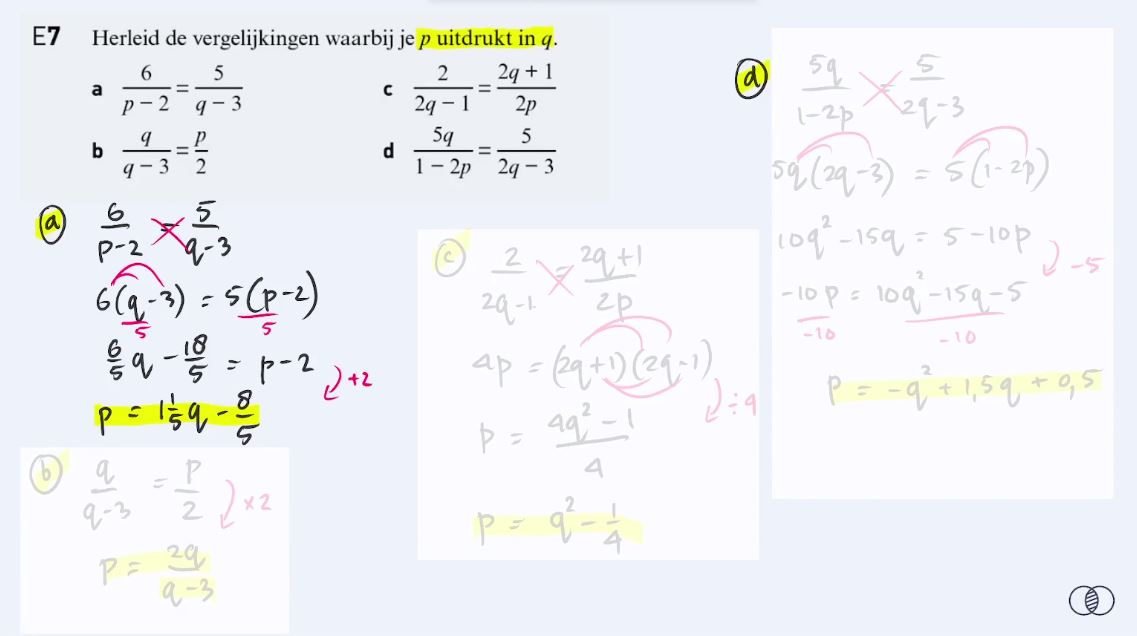 E7 Herleid de vergelijkingen waarbij je p uitdrukt in q.
a 6/(p − 2) = 5/(q − 3)
c 2/(2q − 1) = (2q + 1)/2p
b q/(q − 3) = p/2
d 5q/(1 − 2p) = 5/(2q − 3)
a
6/(p-2) = 5/(q-3)
6(q-3) = 5(p-2)
5 5
6/5 q - 18/5 = p-2
+2
p = 1 1/5 q - 8/5
b
q/(q-3) = p/2
×2
p = 2q/(q-3)
c
2/(2q-1) = (2q+1)/2p
4p = (2q+1)(2q-1)
÷4
p = (4q²-1)/4
p = q² - 1/4
d
5q/(1-2p) = 5/(2q-3)
5q(2q-3) = 5(1-2p)
10q² -15q = 5-10p
-5
-10p = 10q²-15q-5
-10 -10
p = -q² + 1,5q + 0,5